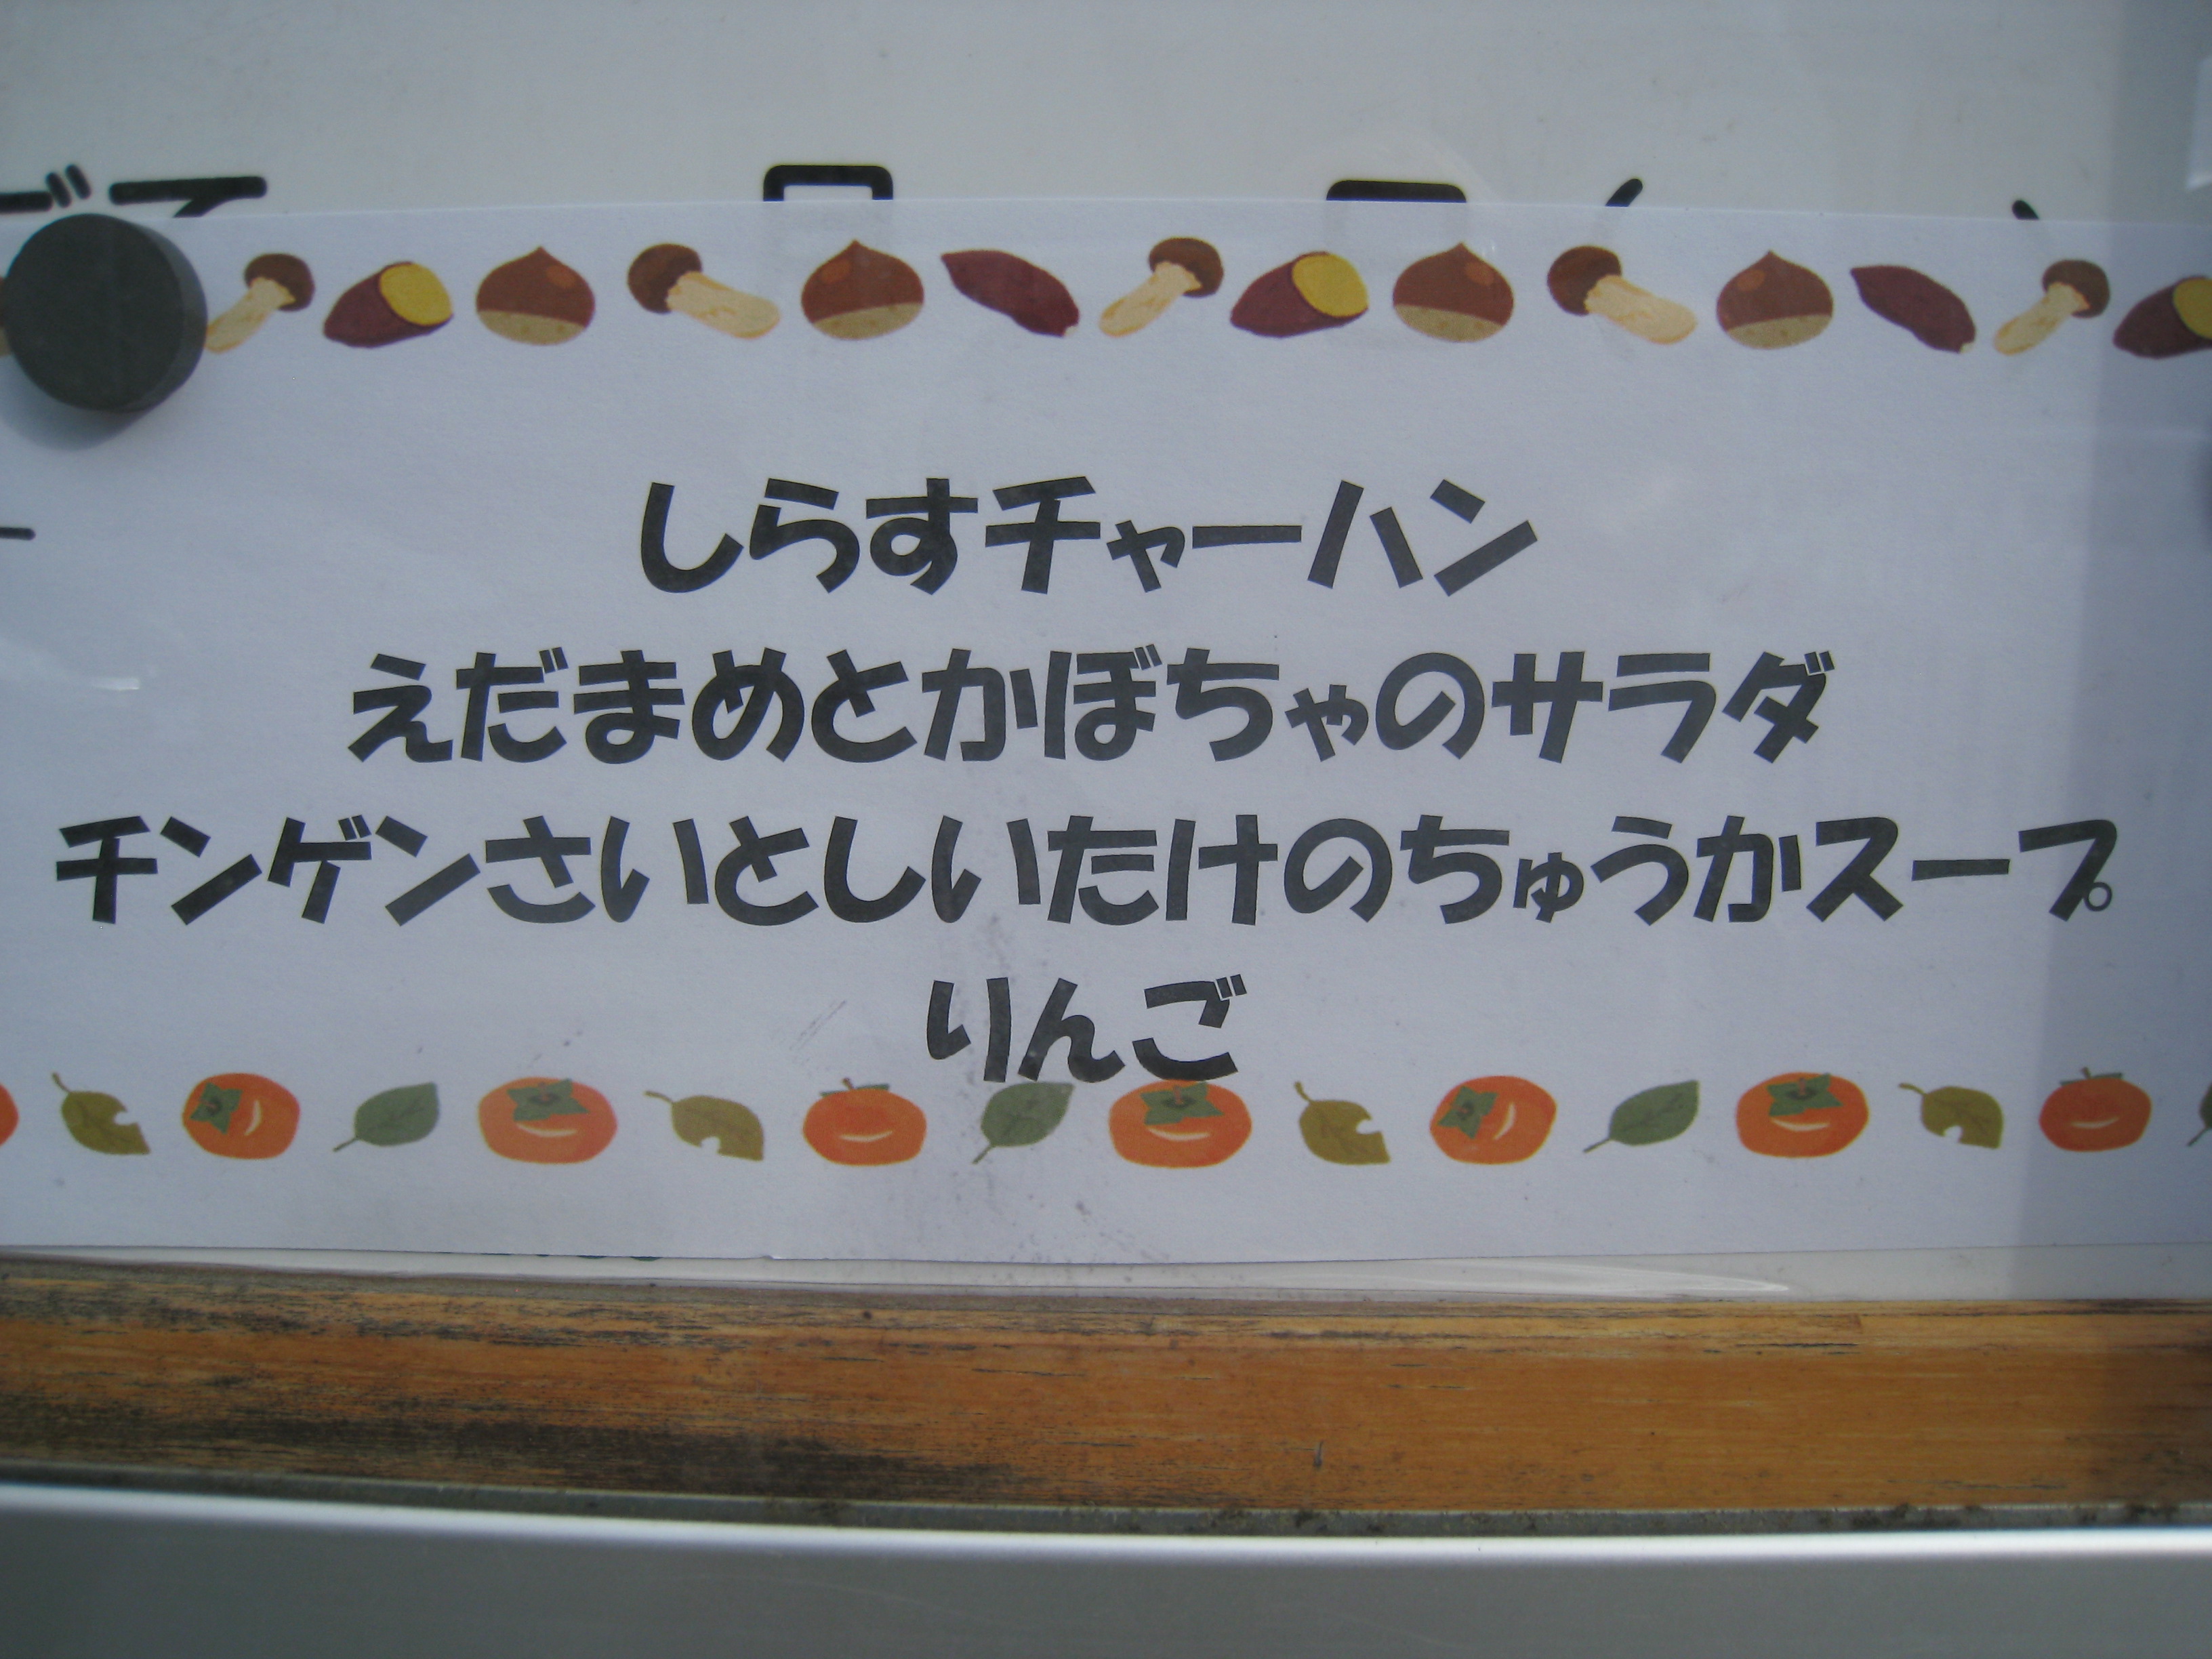 しらすチャーハン
えだまめとかぼちゃのサラダ
チンゲンさいとしいたけのちゅうかスープ
りんご